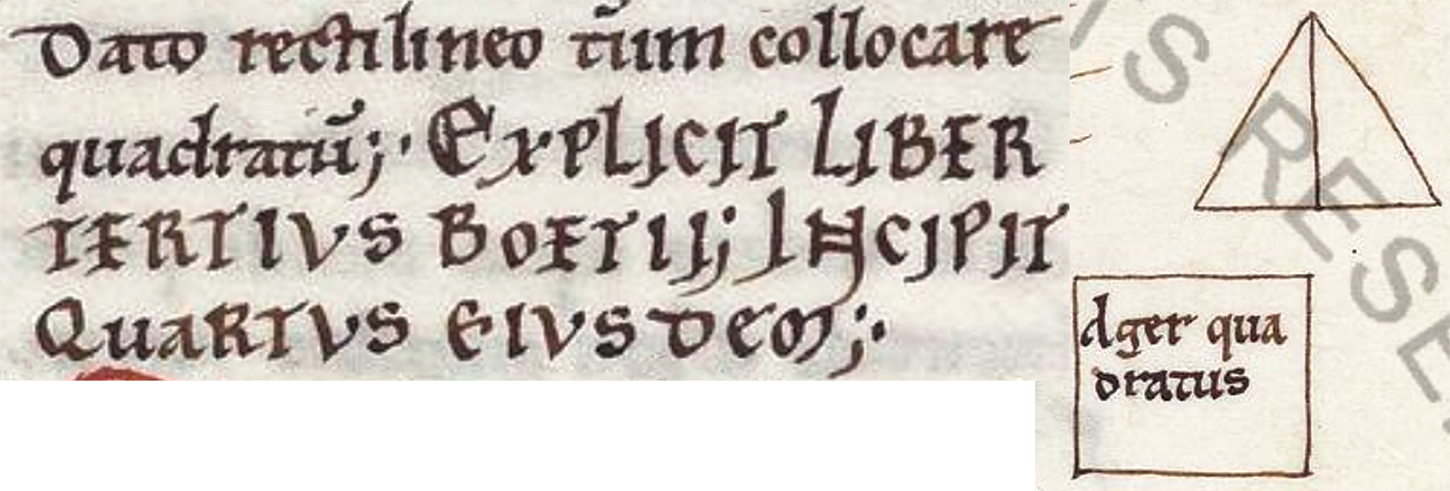 Dato rectilineo cũm collocare
quadratũ;· EXPLICIT LIBER
TERTIVS BOETIJ; INCIPIT
QUARTVS EIVSDEM;·
Ager qua
dratus